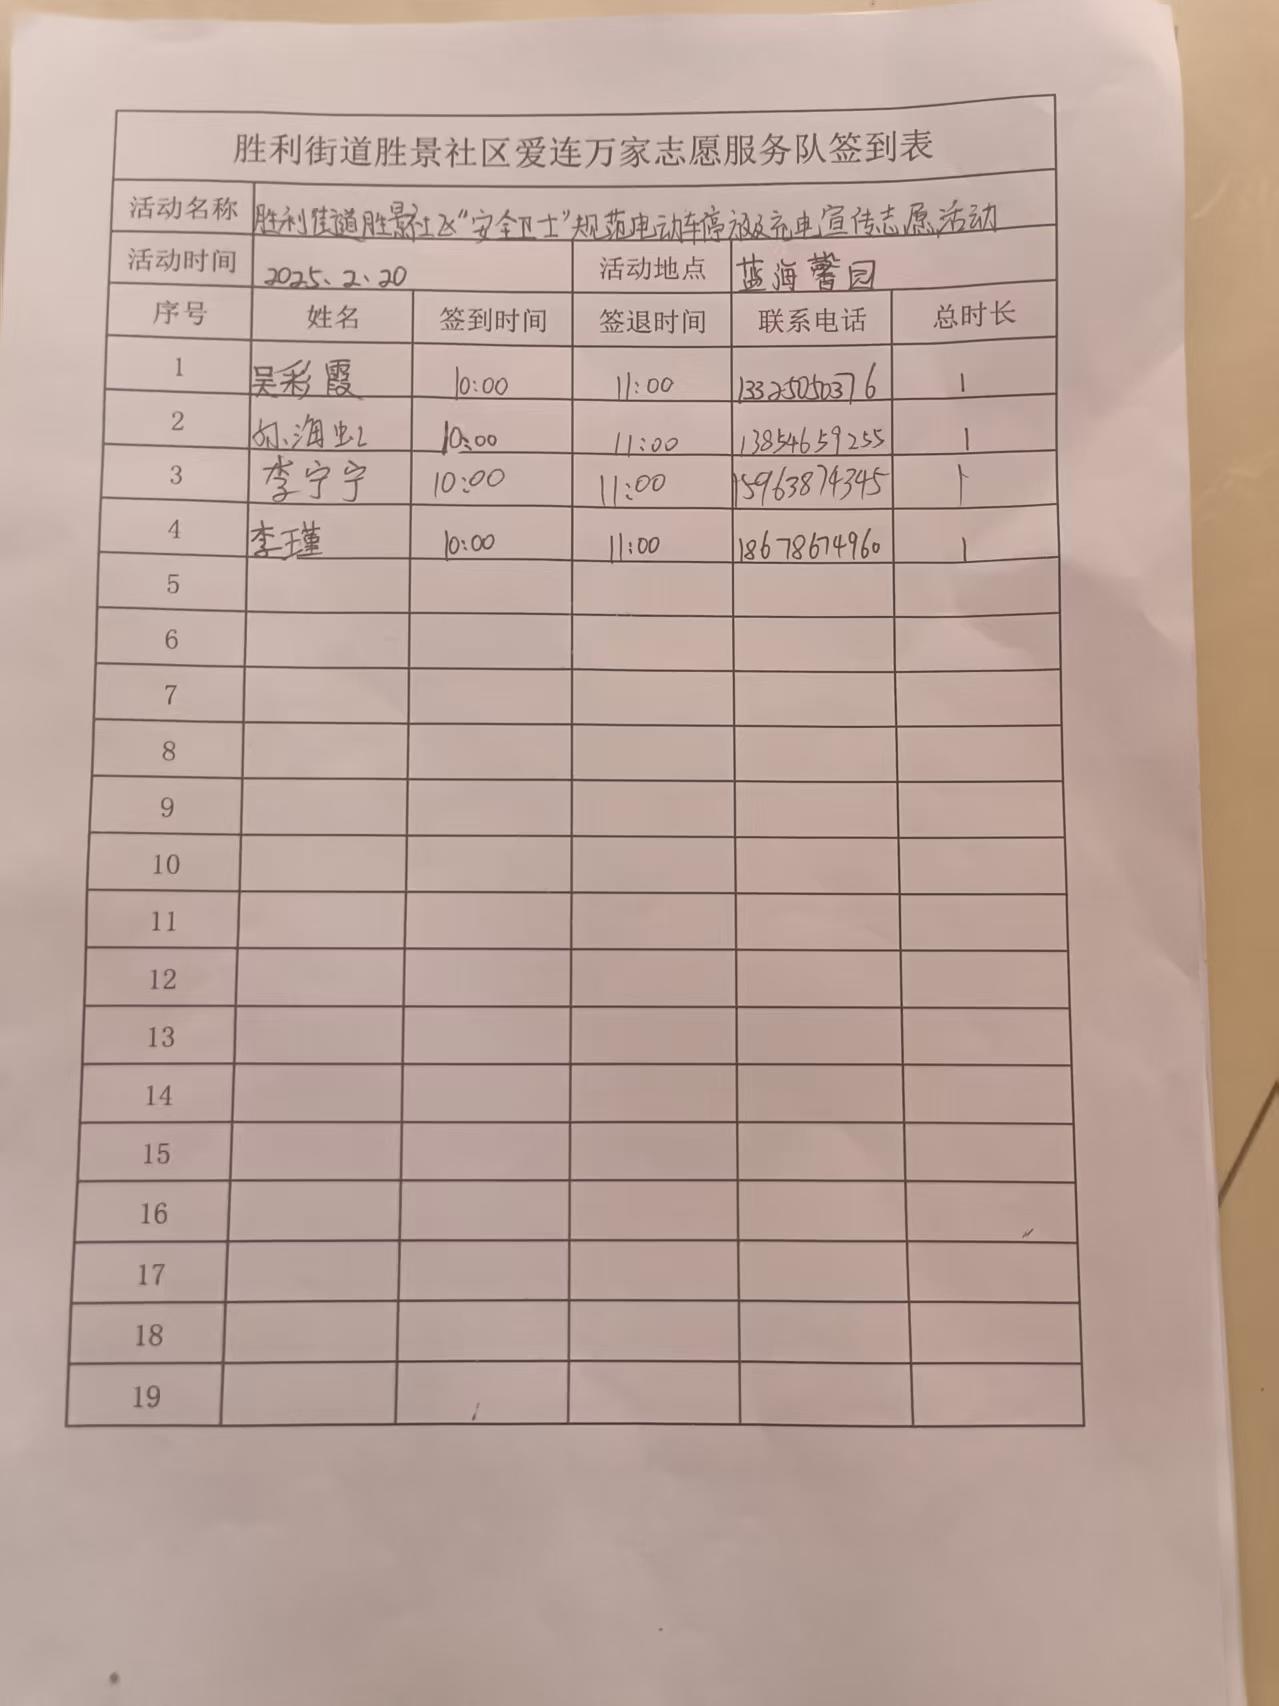 胜利街道胜景社区爱连万家志愿服务队签到表
活动名称 胜利街道胜景社区“安全卫士”规范电动车停放及充电宣传志愿活动
活动时间 2025.2.20 活动地点 蓝海馨园
序号 姓名 签到时间 签退时间 联系电话 总时长
1 吴彩霞 10:00 11:00 13325050376 1
2 孙海虹 10:00 11:00 13854659255 1
3 李宁宁 10:00 11:00 15963874345 1
4 李瑾 10:00 11:00 18678674960 1
5
6
7
8
9
10
11
12
13
14
15
16
17
18
19